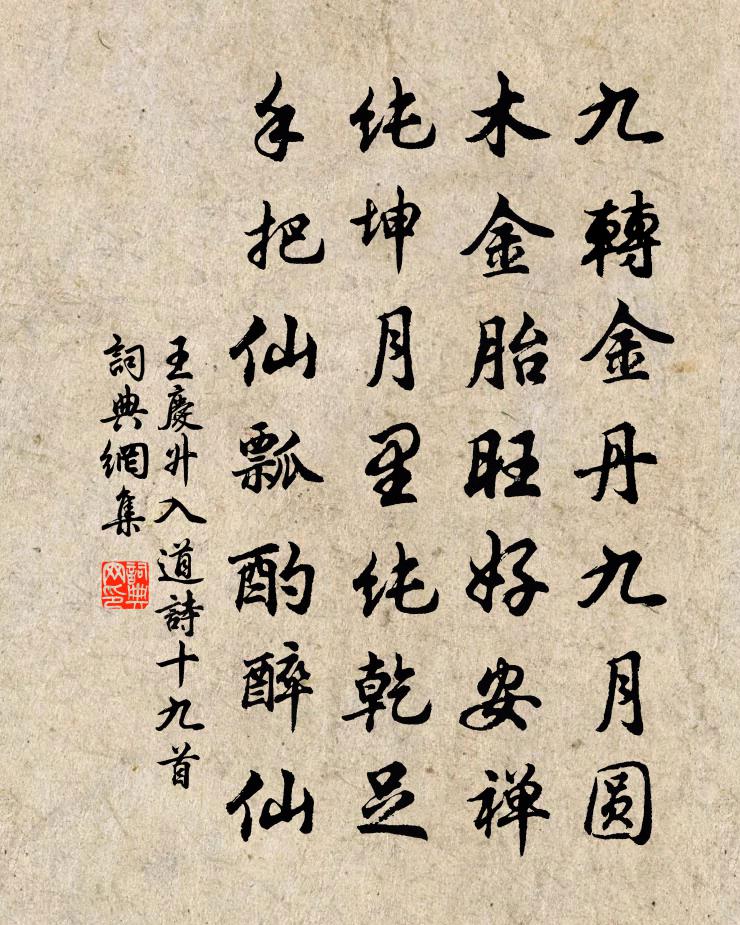 九轉金丹九月圆
木金胎旺好安禅
纯坤月里纯乾足
手把仙瓢酌醉仙
王慶升入道詩十九首
詞典網集
詞典
网印